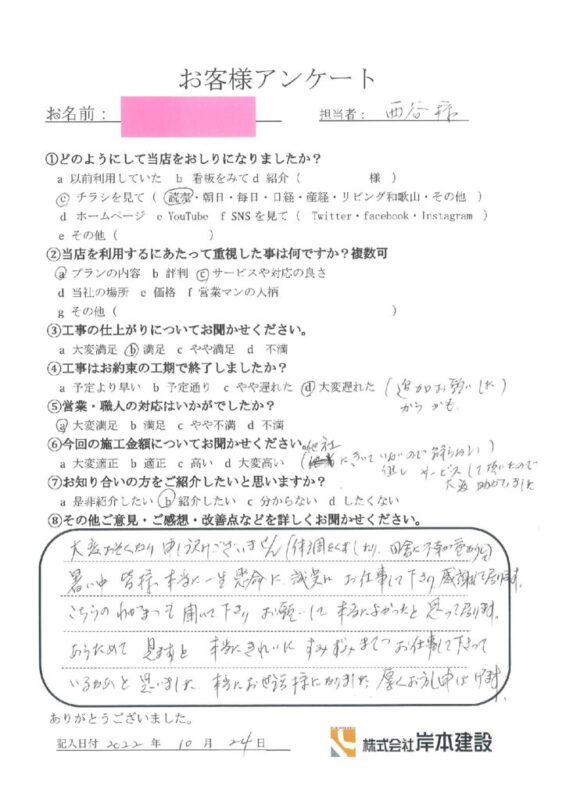 お客様アンケート
お名前：
担当者： 西谷様
①どのようにして当店をおしりになりましたか？
a 以前利用していた b 看板をみて d 紹介（ 様 ）
c チラシを見て（ 読売・朝日・毎日・日経・産経・リビング和歌山・その他 ）
d ホームページ e YouTube f SNSを見て（ Twitter・facebook・Instagram ）
e その他（ ）
②当店を利用するにあたって重視した事は何ですか？複数可
a プランの内容 b 評判 c サービスや対応の良さ
d 当社の場所 e 価格 f 営業マンの人柄
g その他（ ）
③工事の仕上がりについてお聞かせください。
a 大変満足 b 満足 c やや満足 d 不満
④工事はお約束の工期で終了しましたか？
a 予定より早い b 予定通り c やや遅れた d 大変遅れた （追加お願いした
からかも）
⑤営業・職人の対応はいかがでしたか？
a 大変満足 b 満足 c やや不満 d 不満
⑥今回の施工金額についてお聞かせください。
他社にきいていないので解らない
a 大変適正 b 適正 c 高い d 大変高い
但し サービスして頂いたので
大変助かりました
⑦お知り合いの方をご紹介したいと思いますか？
a 是非紹介したい b 紹介したい c 分からない d したくない
⑧その他ご意見・ご感想・改善点などを詳しくお聞かせください。
大変おそくなり申し訳ございません（体調をくずしたり、田舎に不幸が
暑い中 皆様、本当に一生懸命に、誠実に お仕事して下さり 感謝して居ります。
こちらのわがままも聞いて下さり お願いして 本当によかったと思って居ります。
あらためて 見ますと 本当にきれいに すみずみまでお仕事して下さって
いるなあと思いました。本当にお世話様になりました。厚くお礼申し上げます。
ありがとうございました。
記入日付 2022 年 10 月 24 日
株式会社岸本建設